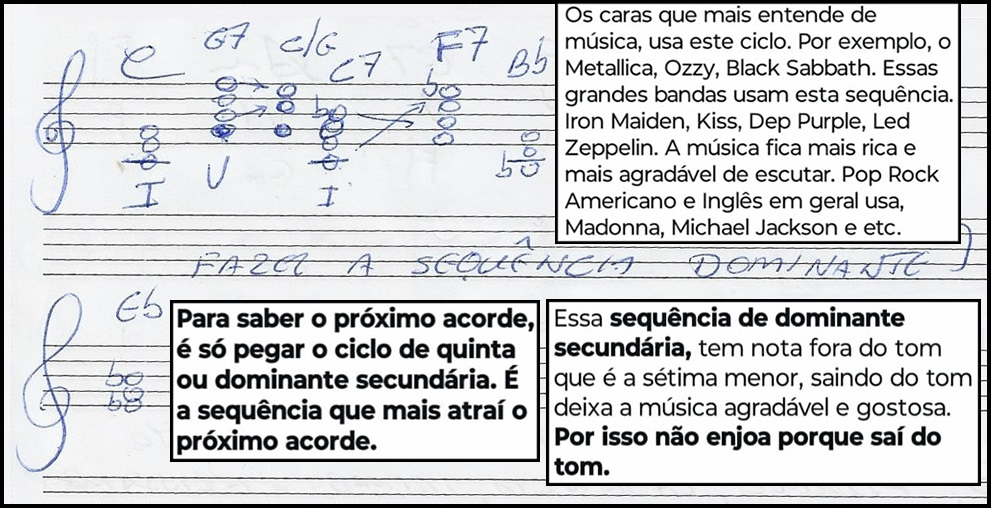 C G7 C/G C7 F7 Bb
I V I
Os caras que mais entende de
música, usa este ciclo. Por exemplo, o
Metallica, Ozzy, Black Sabbath. Essas
grandes bandas usam esta sequência.
Iron Maiden, Kiss, Dep Purple, Led
Zeppelin. A música fica mais rica e
mais agradável de escutar. Pop Rock
Americano e Inglês em geral usa,
Madonna, Michael Jackson e etc.
FAZER A SEQUÊNCIA DOMINANTE
Eb
Para saber o próximo acorde,
é só pegar o ciclo de quinta
ou dominante secundária. É
a sequência que mais atraí o
próximo acorde.
Essa sequência de dominante
secundária, tem nota fora do tom
que é a sétima menor, saindo do tom
deixa a música agradável e gostosa.
Por isso não enjoa porque saí do
tom.